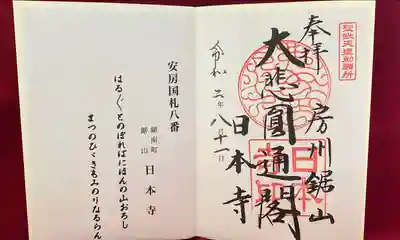 奉拝
房州鋸山
大悲圓通閣
日本寺
令和二年八月十一日
安房国札八番
鋸南町
鋸山
日本寺
はる〲とのぼればにほんの山おろし
まつのひゞきもみのりなるらん